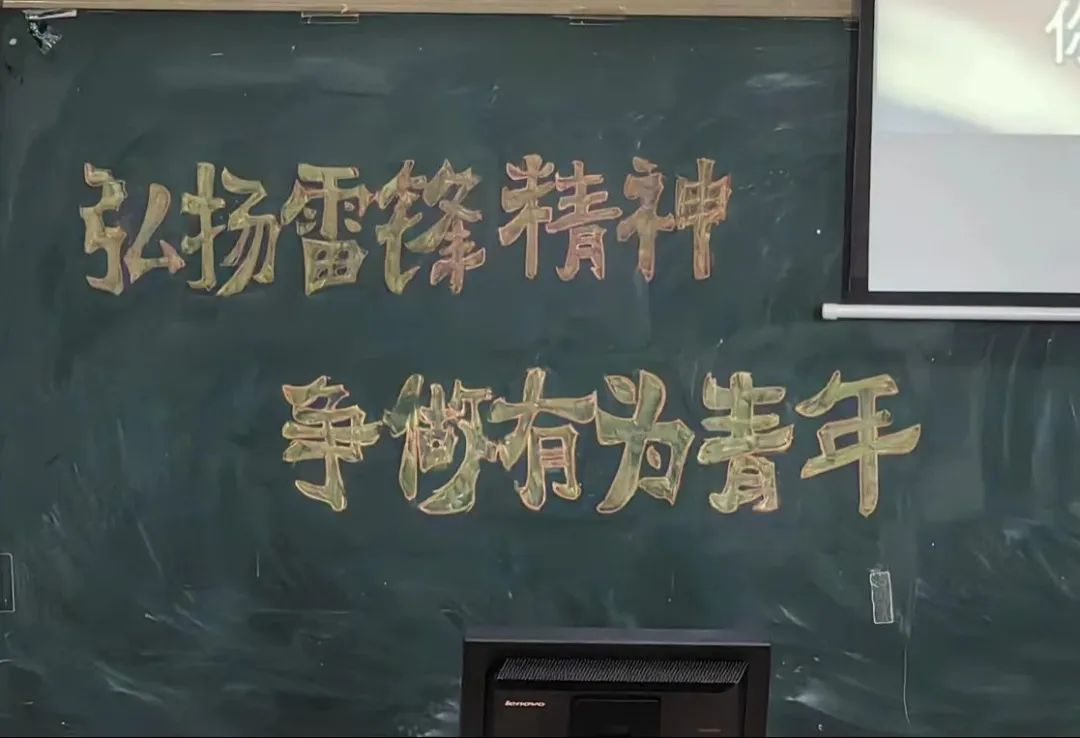 弘扬雷锋精神
争做有为青年
lenovo